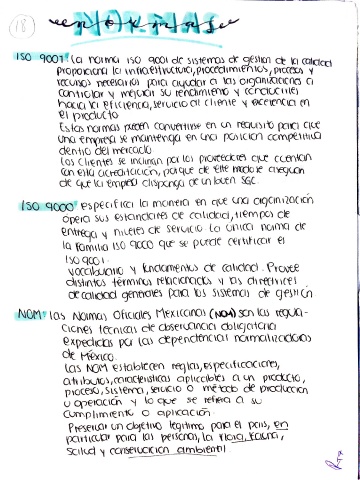 18
Normas
ISO 9001: La norma ISO 9001 de sistemas de gestión de la calidad
proporciona la infraestructura, procedimientos, procesos y
recursos necesarios para ayudar a las organizaciones a
controlar y mejorar su rendimiento y conducirles
hacia la eficiencia, servicio al cliente y excelencia en
el producto
Estas normas pueden convertirse en un requisito para que
una empresa se mantenga en una posición competitiva
dentro del mercado
Los clientes se inclinan por los proveedores que cuentan
con esta acreditación, porque de este modo se aseguran
de que la empresa disponga de un buen SGC.
ISO 9000 especifica la manera en que una organización
opera sus estandares de calidad, tiempos de
entrega y niveles de servicio La única norma de
la familia ISO 9000 que se puede certificar el
ISO 9001.
Vocabulario y fundamentos de calidad. Provee
distintos términos relacionados y las directrices
de calidad generales para los sistemas de gestión
NOM: Las Normas Oficiales Mexicanas (NOM) son las regula-
ciones técnicas de observancia obligatoria
expedidas por las dependencias normalizadoras
de México.
Las NOM establecen reglas, especificaciones,
atributos, características aplicables a un producto,
proceso, sistema, servicio o método de producción
u operación y lo que se refiera a su
cumplimiento o aplicación.
Preservar un objetivo legítimo para el país, en
particular para las personas, la flora, fauna,
salud y conservación ambiental